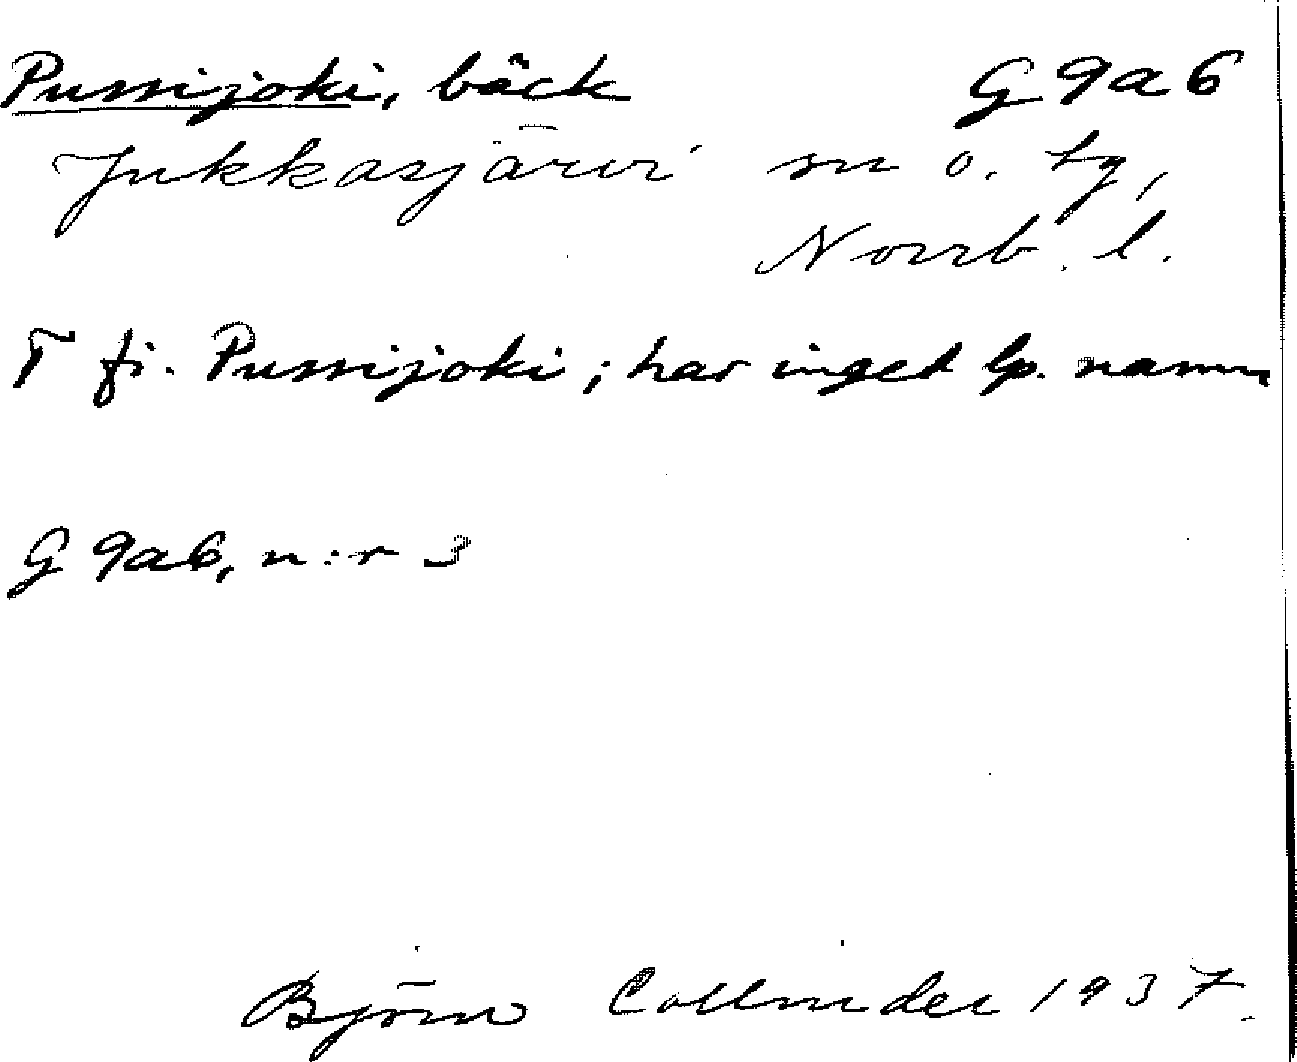 Pussijoki, bäck G 9a6
Jukkasjärvi sn o. tg,
Norrb. l.
T fi. Pussijoki; har inget lp. namn
G 9a6, n:r 3
Björn Collinder 1937.